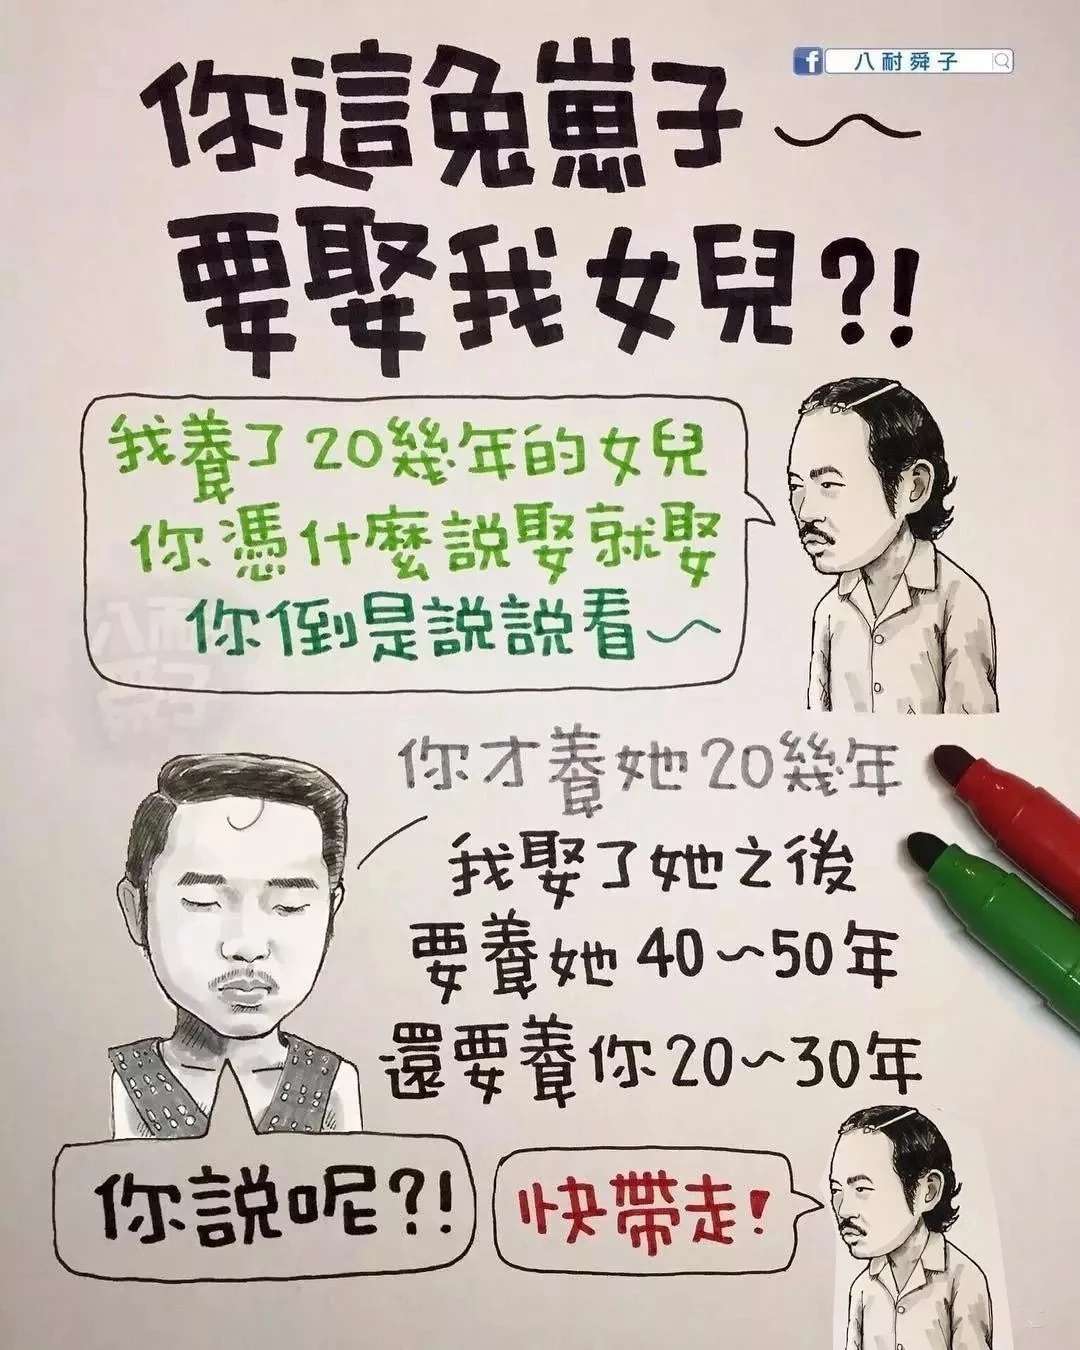 八耐舜子
你這兔崽子～
要娶我女兒?!
我養了20幾年的女兒
你憑什麼說娶就娶
你倒是說說看～
八耐
舜子
你才養她20幾年
我娶了她之後
要養她40～50年
還要養你20～30年
你說呢?!
快帶走!